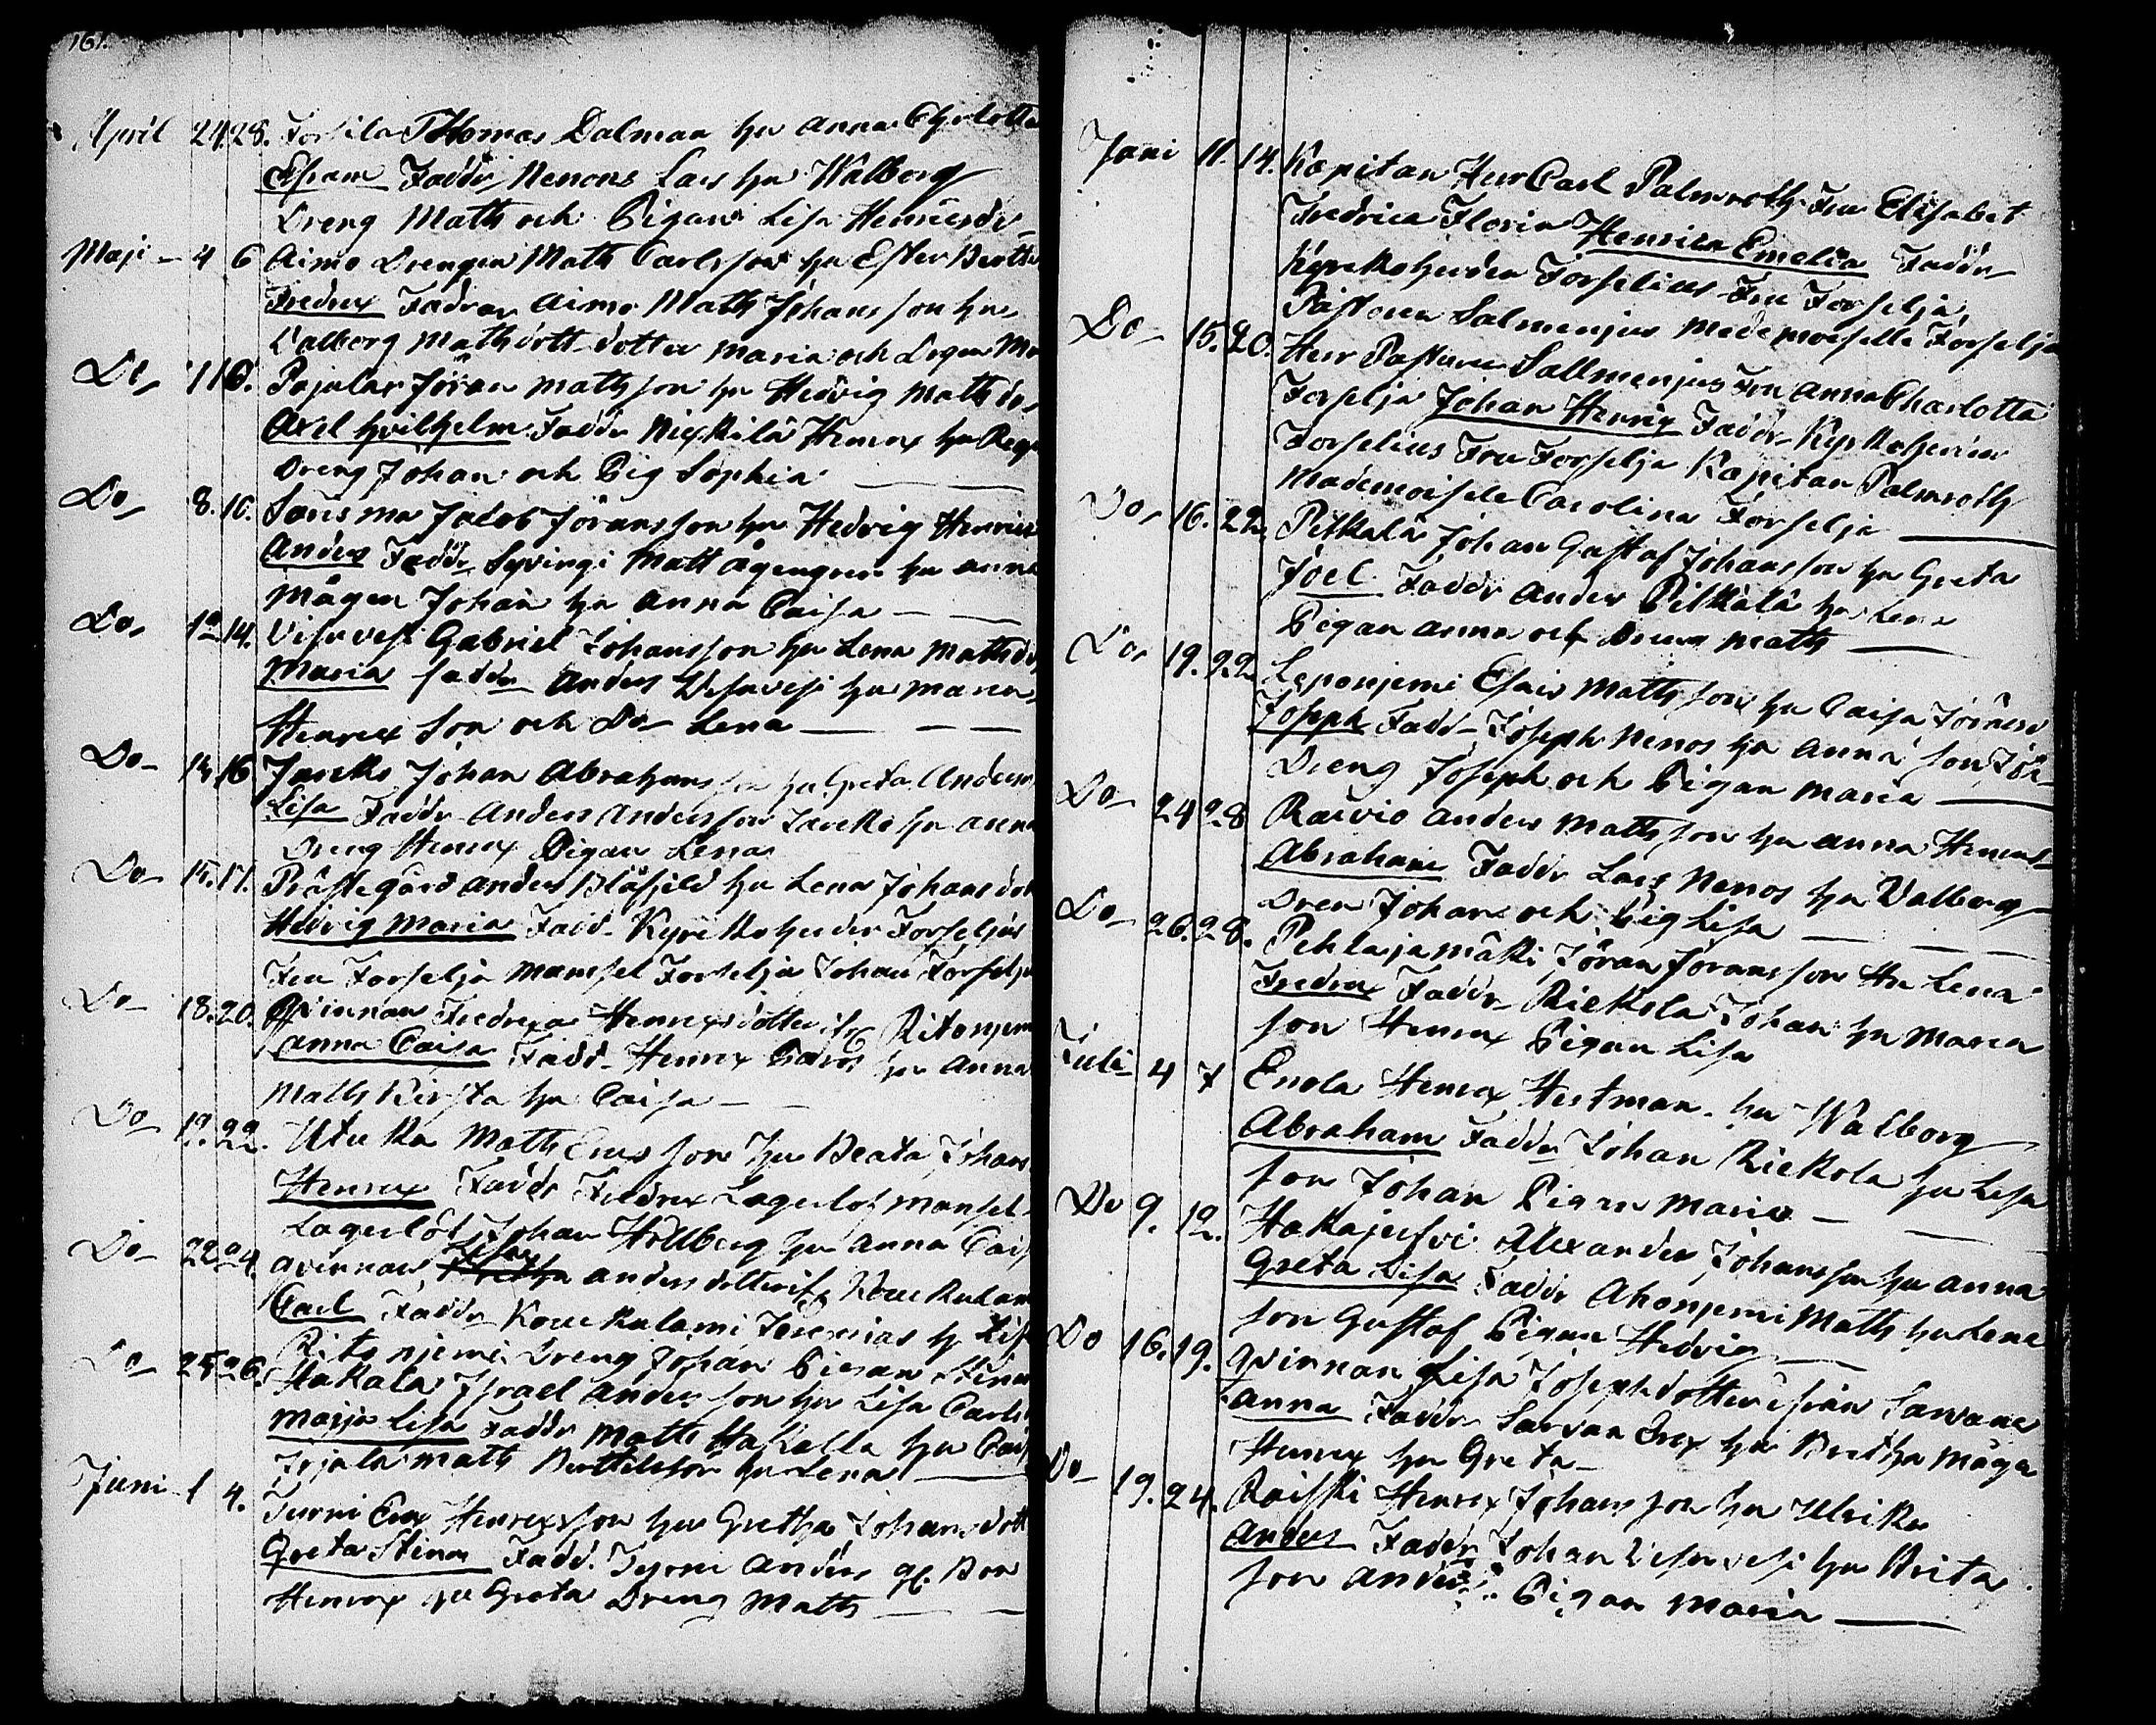 161.
April 24 28. Forsila Thomas Dalman hu Anna Chrlotta
Efram Faddr Nenons Lars hu Walborg
Dreng Matts och Pigan Lisa Henricsdr
Maji 4 6 Aimo Drengen Matts Carlsson hu Ester Bertte
Fredrex Fadrar Aimo Matts Johansson hu
Valborg Mattsdott dotter Maria och Drgen Ma
Do 1 16. Pajular Jöran Mattsson hu Hedvig Mattsdr
Axel Hvilhelm Faddr Nixkilä Henrex hu Reg
Dreng Johan och Pig Sophia
Do 8. 10. Jacob Jöransson hu Hedvig Henrics
Anders Faddr Syvingi Matt hu Anna
Mågen Johan hu Anna Caisa
Do 12 14. Visavesi Gabriel Johansson hu Lena Mattsdr
Maria faddr Anders Visavesi hu Maria
Henrex Son och Do Lena
Do 14 16 Jareko Johan Abrahamsson hu Greta Anders
Lisa Faddr Anders Andersson Jareko hu Anna
Dreng Henrex Pigan Lena
Do 15. 17. Prästegård Anders Blåfjeld hu Lena Johansdott
Hedvig Maria Fadd Kyrkoherder Forseljus
Fru Forselja Mamsel Forselja Johan Forselju
Do 18. 20. Qvinnan Fredrica Henrexsdotter ifr Ritonjem
Anna Caisa Fadd Henrex hu Anna
Matts hu Caisa
Do 19. 22. Utu Ka Matts Ericsson hu Beata Johans
Henrex Faddr Fredrex Lagerlöf Mamsel
Lagerlöf Johan Hållberg hu Anna Cais
Do 22 24. qvinnan Lisa Andersdotter ifr Koukulam
Carl Faddr Koukulami Jeremias h Lisa
Ritonjemi Dreng Johan Pigan Stina
Do 25 26. Hakala Israel Andersson hu Lisa Carls
Maija Lisa Faddr Matts Hakalla hu Cais
Irjala Matts Berttelsson hu Lena
Juni 1 4. Turni Erex Henrexsson hu Gretha Johansdott
Greta Stina Fadd. Anders gl. Bon
Henrex hu Greta Dreng Matts
Juni 11. 14. Kapitan Herr Carl Palmroth Fru Elisabet
Fredrica Florin Henrica Emelia Faddr
Kyrkoherden Forselius Fru Forselja
Pastoren Salmenjus Mademoiselle Forselja
Do 15. 20. Herr Pastoren Sallmenjus Fru Anna Charlotta
Forselja Johan Henrix Faddr Kyrkoherden
Forselius Fru Forselja Kapitan Palmroth
Mademoisele Carolina Forselja
Do 16. 22. Pitkalä Johan Gustaf Johansson hu Greta
Joel Faddr Anders Pitkälä hu Lena
Pigan Anna och Dreng Matts
Do 19. 22 Leponjemi Esais Mattsson hu Caisa Jörans
Joseph Fadd Joseph Nenos hu Anna son Jör
Dreng Joseph och Pigan Maria
Do 24 28 Raivio Anders Mattsson hu Anna Henrics
Abraham Faddr Lars Nenos hu Valborg
Dren Johan och Pig Lisa
Do 26. 28. Pehlajamäki Jöran Joransson Hu Lena
Fredrex Faddr Riekola Johan hu Maria
son Henrex Pigan Lisa
Juli 4 7 Enola Henrex Hertman hu Walborg
Abraham Faddr Johan Riekola hu Lisa
son Johan Pigan Maria
Do 9. 12. Hakajerfvi Alexander Johansson hu Anna
Greta Lisa Faddr Ahonjemi Matts hu Lena
son Gustaf Pigan Hedvig
Do 16. 19. qvinnan Lisa Josephsdotter ifrån Sarvane
Anna Faddr Sarvan Erex hu Bretha Måga
Henrex hu Greta
Do 19. 24. Raiski Henrex Johansson hu Ulrika
Anders Faddr Johan Visavesi hu Brita
son Anders Pigan Maria